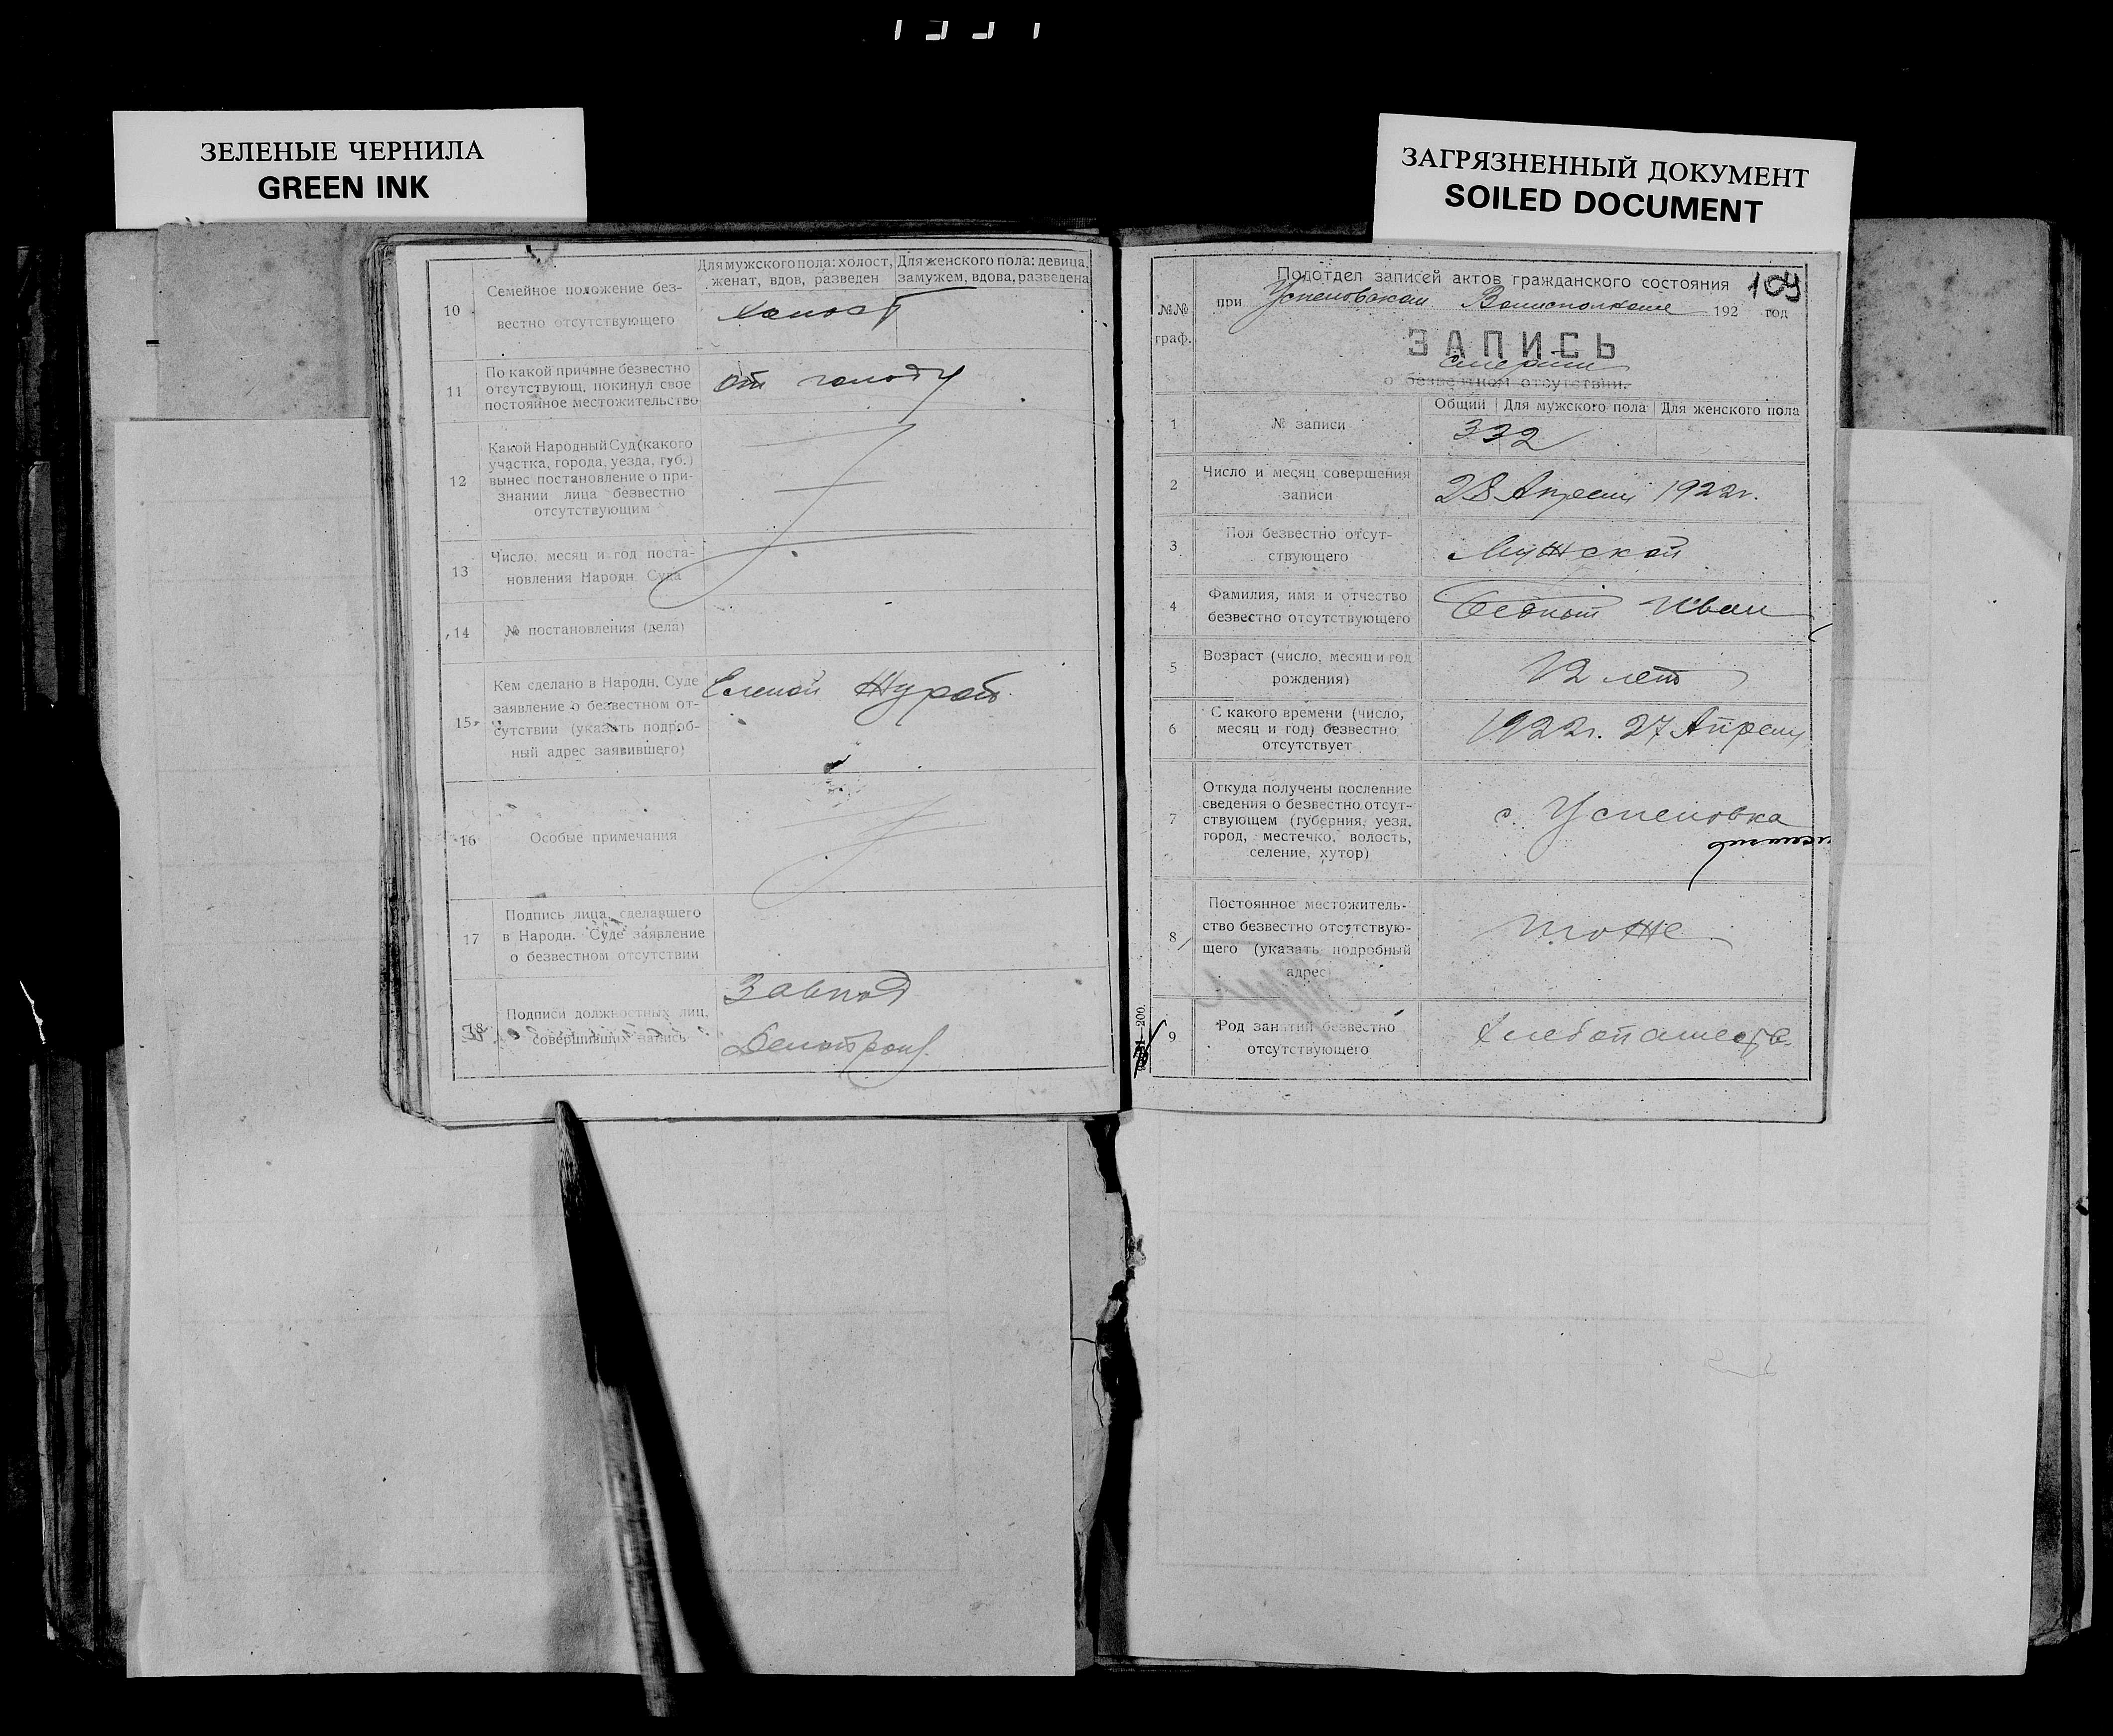 ЗЕЛЕНЫЕ ЧЕРНИЛА
GREEN INK
ЗАГРЯЗНЕННЫЙ ДОКУМЕНТ
SOILED DOCUMENT
Для мужского пола: холост, женат, вдов, разведен
Для женского пола: девица, замужем, вдова, разведена
10
Семейное положение без-
вестно отсутствующего
холост
11
По какой причине безвестно
отсутствующ. покинул свое
постоянное местожительство
от голоду
12
Какой Народный Суд (какого
участка, города, уезда, губ.)
вынес постановление о при-
знании лица безвестно
отсутствующим
13
Число, месяц и год поста-
новления Народн. Суда
14
№ постановления (дела)
15
Кем сделано в Народн. Суде
заявление о безвестном от-
сутствии (указать подроб-
ный адрес заявившего)
Еленой
16
Особые примечания
17
Подпись лица, сделавшего
в Народн. Суде заявление
о безвестном отсутствии
18
Подписи должностных лиц,
совершивших запись
Завпод
109
Подотдел записей актов гражданского состояния
при Успеновском Волисполкоме 192 год
№№
граф.
ЗАПИСЬ
смерти
о безвестном отсутствии.
Общий Для мужского пола Для женского пола
1
№ записи
332
2
Число и месяц совершения
записи
28 Апреля 1922г.
3
Пол безвестно отсут-
ствующего
Мужской
4
Фамилия, имя и отчество
безвестно отсутствующего
Иван
5
Возраст (число, месяц и год
рождения)
12 лет
6
С какого времени (число,
месяц и год) безвестно
отсутствует
1922г. 27 Апреля
7
Откуда получены последние
сведения о безвестно отсут-
ствующем (губерния, уезд,
город, местечко, волость,
селение, хутор)
с. Успеновка
8
Постоянное местожитель-
ство безвестно отсутствую-
щего (указать подробный
адрес)
тоже
9
Род занятий безвестно
отсутствующего
Хлебопашеств.